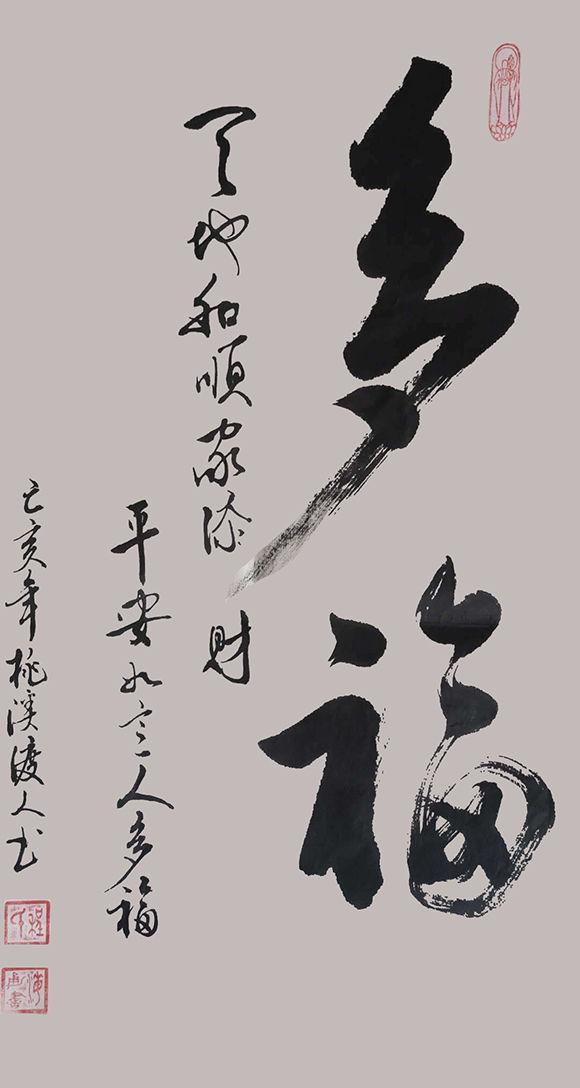 多福
天地和順家添財
平安如意人多福
己亥年桃溪渡人书